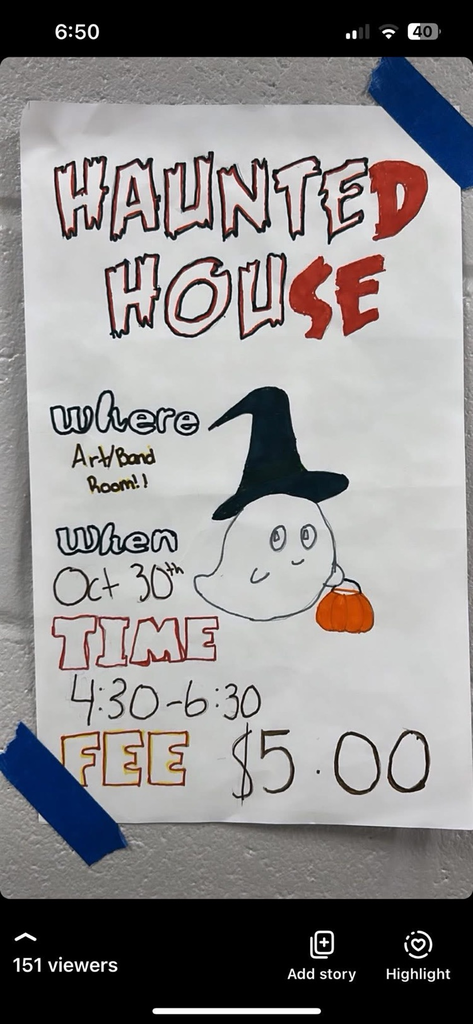 6:50
40
HAUNTED
HOUSE
Where
Art/Band
Room!!
When
Oct 30th
TIME
4:30-6:30
FEE $5.00
151 viewers
Add story
Highlight